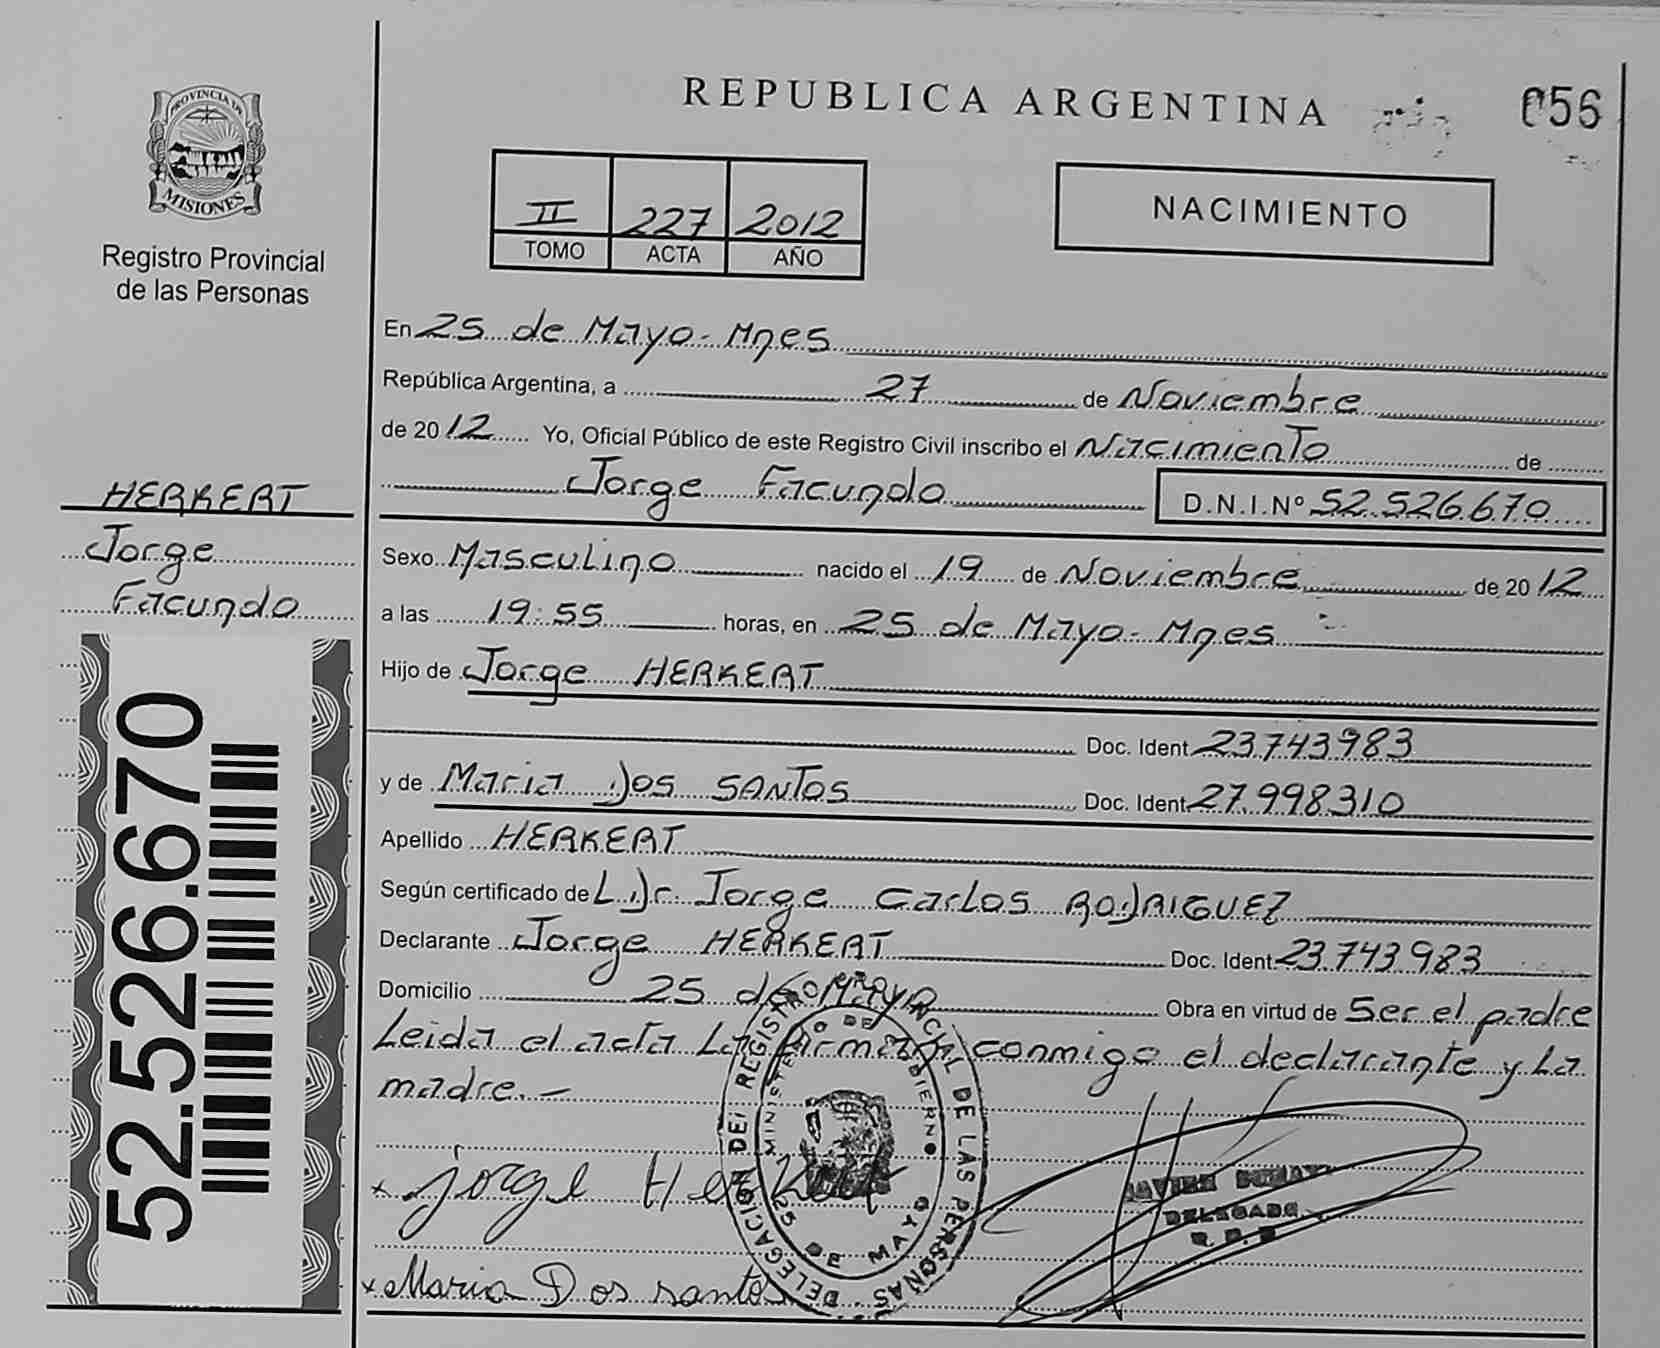 PROVINCIA DE
MISIONES
Registro Provincial
de las Personas
HERKERT
Jorge
Facundo
52.526.670
REPUBLICA ARGENTINA
056
II 227 2012
TOMO ACTA AÑO
NACIMIENTO
En 25 de Mayo - Mnes
República Argentina, a 27 de Noviembre
de 2012 Yo, Oficial Público de este Registro Civil inscribo el Nacimiento de
Jorge Facundo D.N.I.Nº 52.526.670
Sexo Masculino nacido el 19 de Noviembre de 2012
a las 19:55 horas, en 25 de Mayo - Mnes
Hijo de Jorge HERKERT
Doc. Ident. 23.743.983
y de Maria Dos SANTOS Doc. Ident. 27.998.310
Apellido HERKERT
Según certificado de L. Dr. Jorge Carlos RODRIGUEZ
Declarante Jorge HERKERT Doc. Ident. 23.743.983
Domicilio 25 de Mayo Obra en virtud de Ser el padre
Leida el acta La firman conmigo el declarante y La
madre. -
DELEGACION DEL REGISTRO PROVINCIAL DE LAS PERSONAS
MINISTERIO DE GOBIERNO
25 DE MAYO
x jorge Herkert
DELEGADO
x Maria Dos santos